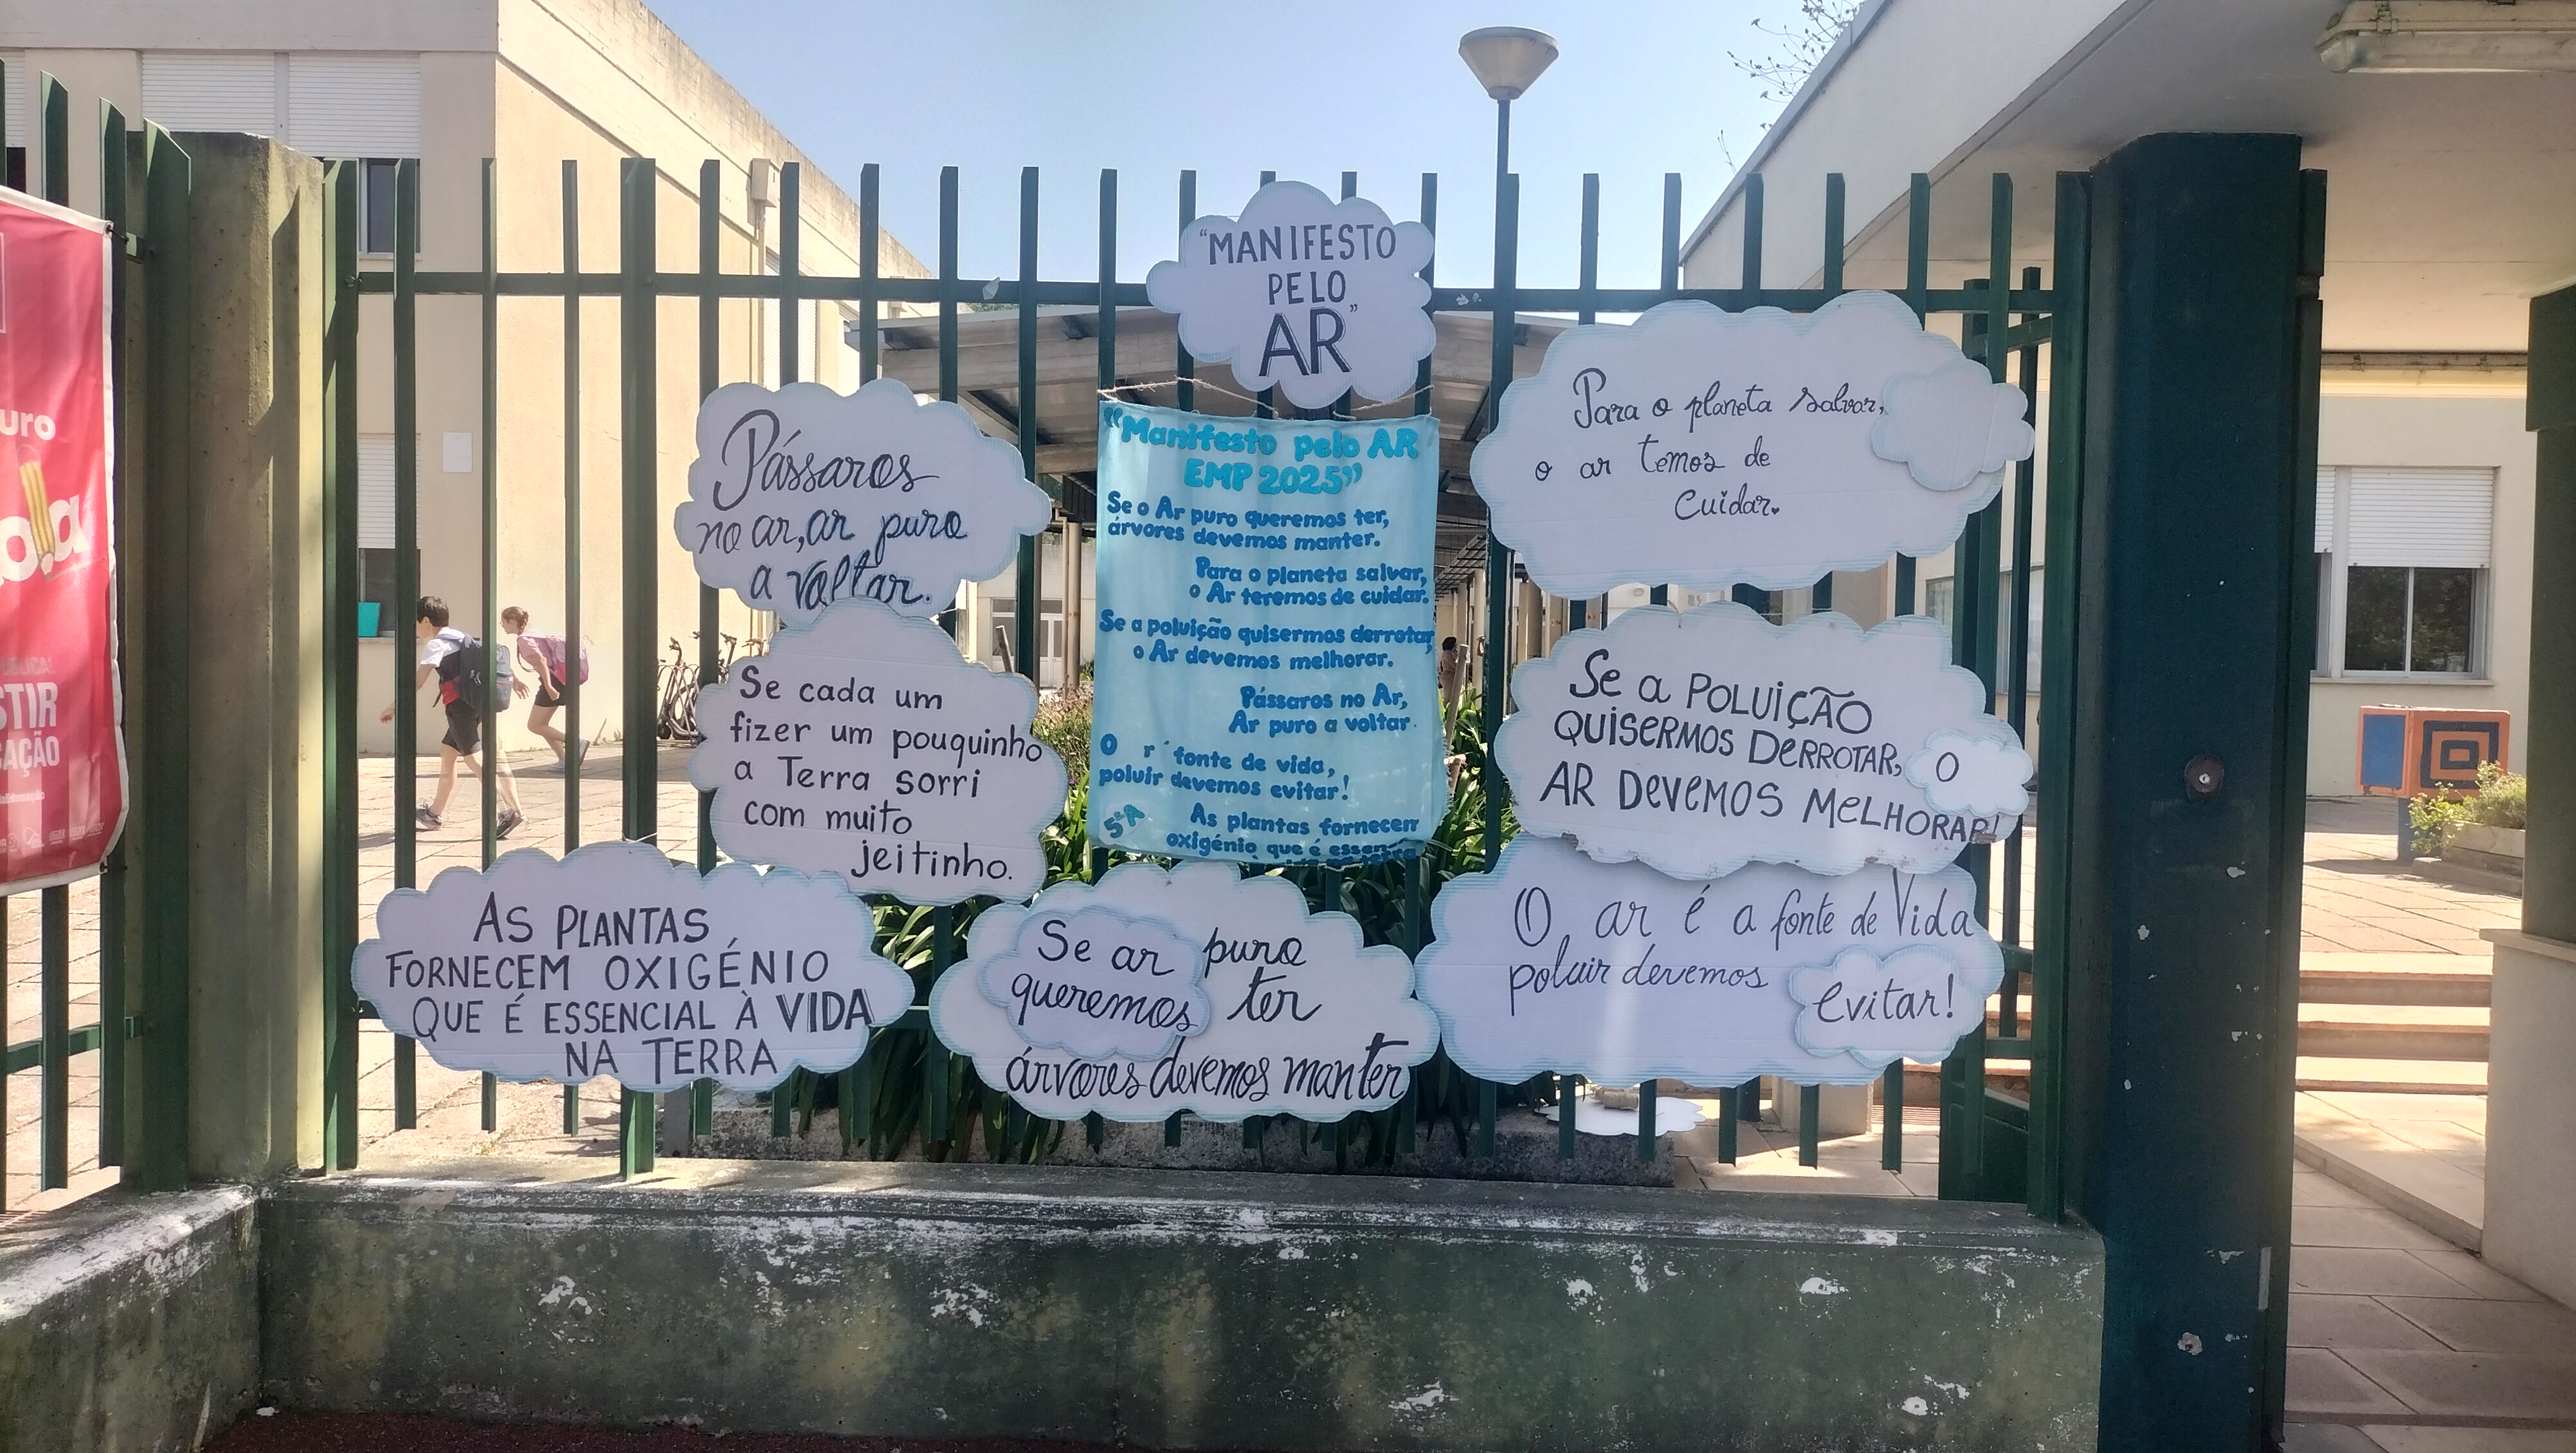 "MANIFESTO
PELO
AR"
Pássaros
no ar, ar puro
a voltar.
Se cada um
fizer um pouquinho
a Terra sorri
com muito
jeitinho.
AS PLANTAS
FORNECEM OXIGÉNIO
QUE É ESSENCIAL À VIDA
NA TERRA
"Manifesto pelo AR
EMP 2025"
Se o Ar puro queremos ter,
árvores devemos manter.
Para o planeta salvar,
o Ar teremos de cuidar.
Se a poluição quisermos derrotar,
o Ar devemos melhorar.
Pássaros no Ar,
Ar puro a voltar.
O r ´ fonte de vida,
poluir devemos evitar!
5ºA
As plantas fornecem
oxigénio que é essen-
Se ar puro
queremos ter
árvores devemos manter
Para o planeta salvar,
o ar temos de
cuidar.
Se a POLUIÇÃO
QUISERMOS DERROTAR, O
AR DEVEMOS MELHORAR!
O ar é a fonte de Vida
poluir devemos
evitar!
uro
STIR
AÇÃO